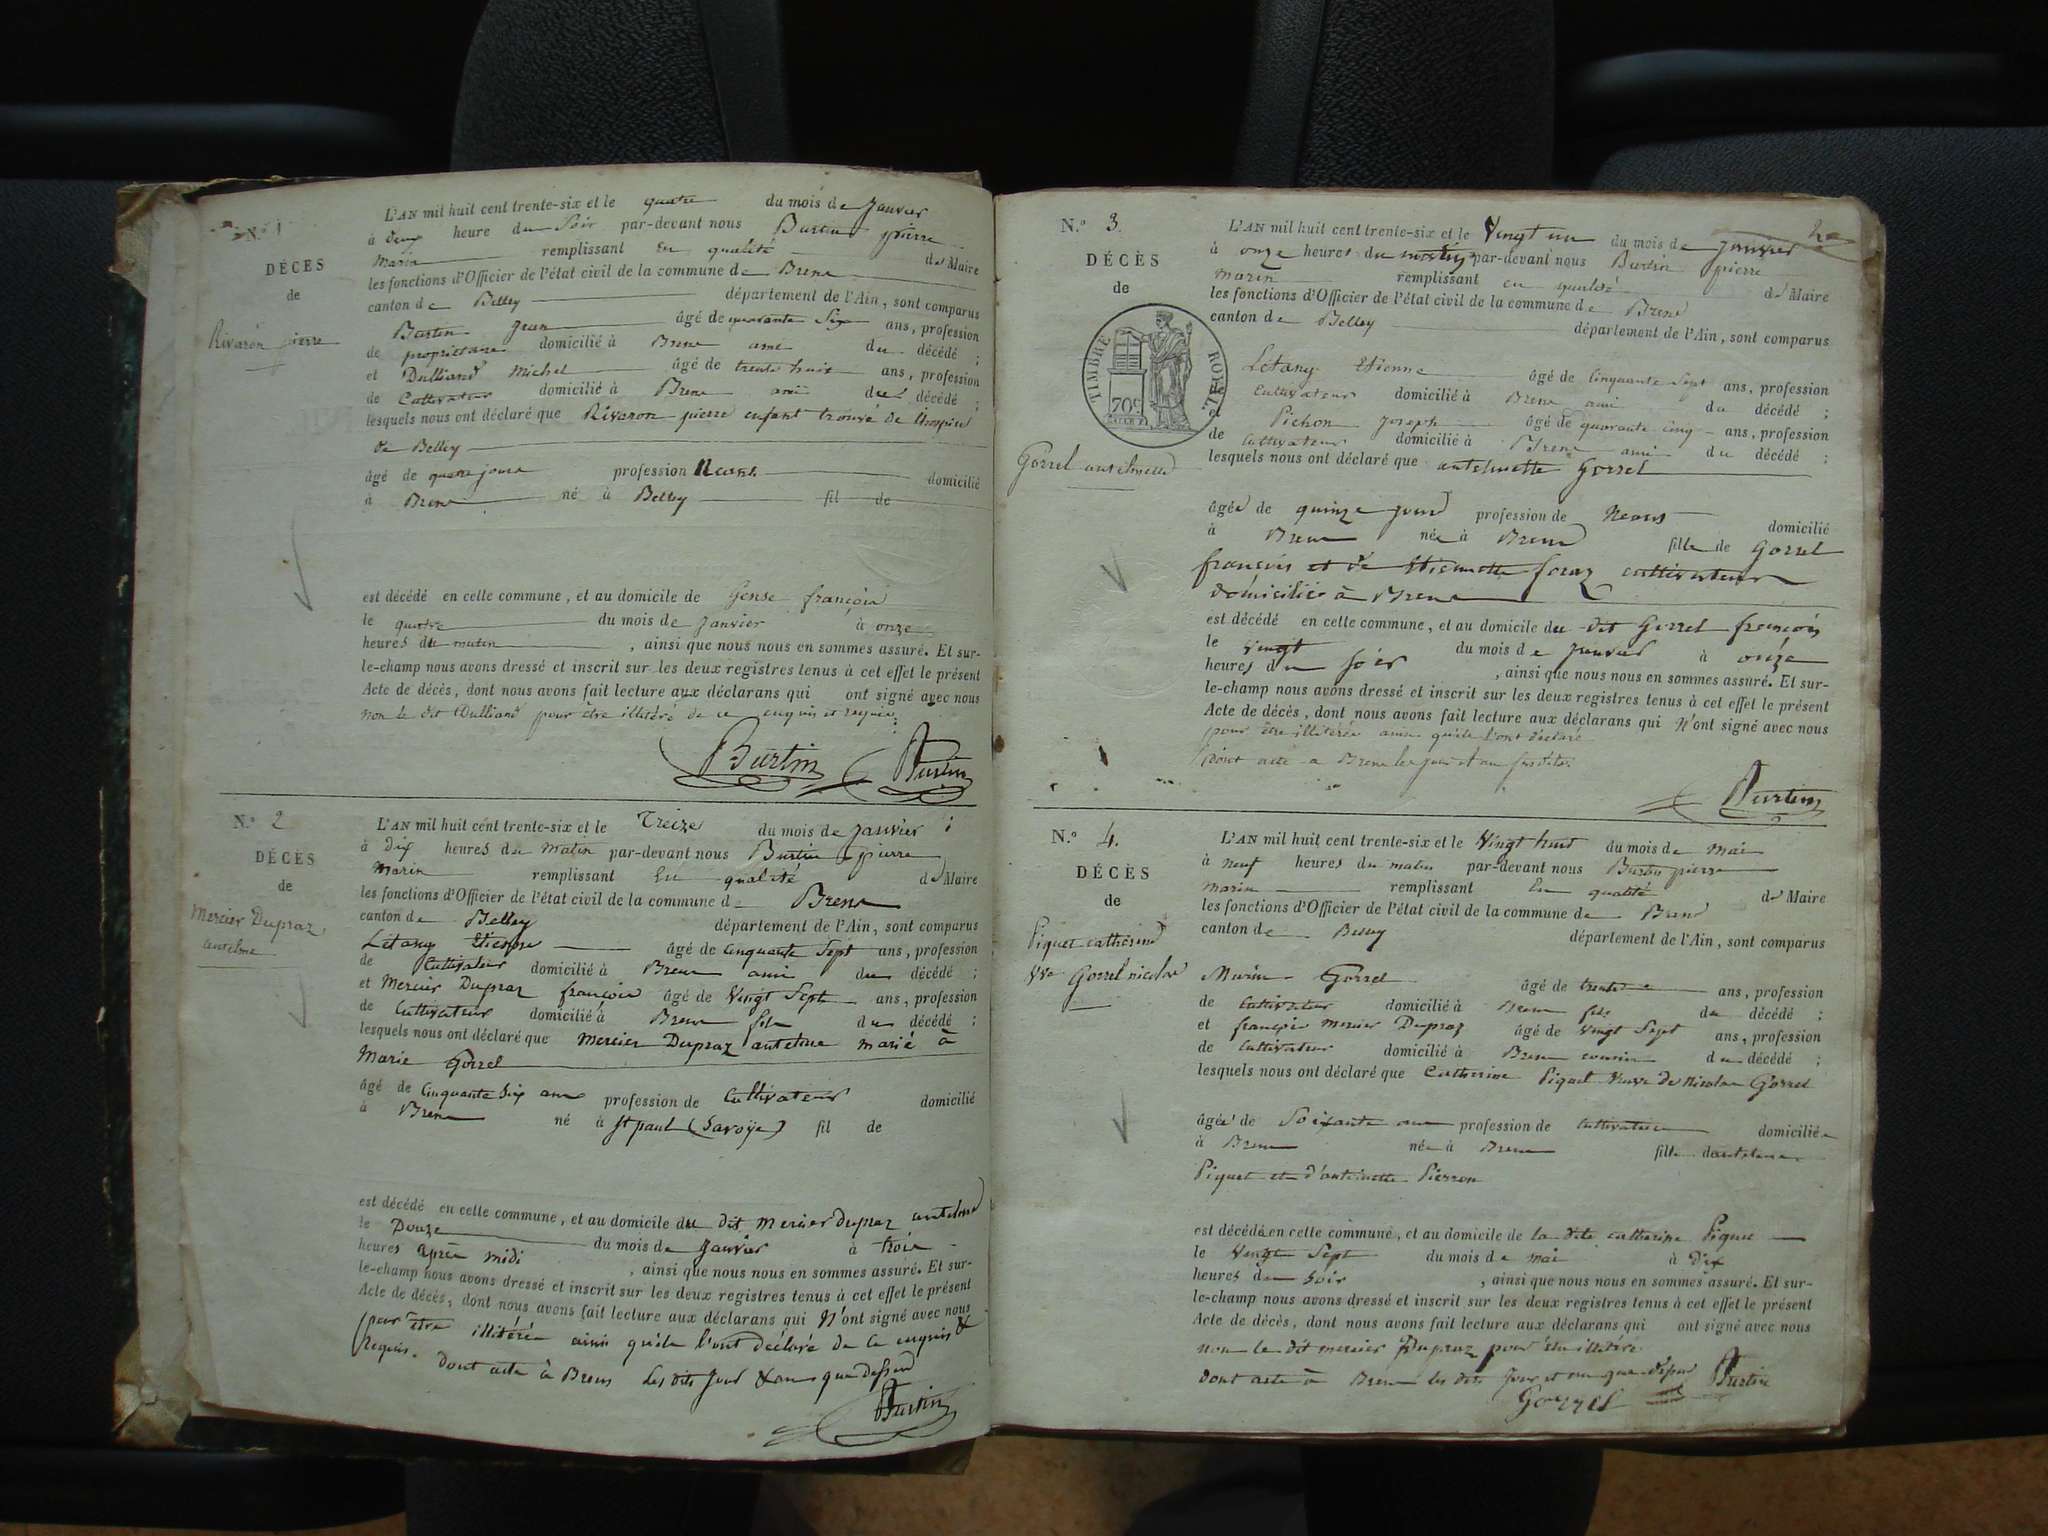 N.º 1
DÉCÈS
de
Rivaron pierre
L'AN mil huit cent trente-six et le quatre du mois de Janvier
à deux heure du Soir par-devant nous Burtin pierre
Marin remplissant en qualité de Maire
les fonctions d'Officier de l'état civil de la commune de Brens
canton de Belley département de l'Ain, sont comparus
Burtin Jean âgé de quarante Six ans, profession
de propriétaire domicilié à Brens ami du décédé ;
et Dulliand Michel âgé de trente huit ans, profession
de Cultivateur domicilié à Brens ami du décédé ;
lesquels nous ont déclaré que Rivaron pierre enfant trouvé de l'hospice
de Belley
âgé de quatre jours profession domicilié
à Brens né à Belley fil de
est décédé en celle commune, et au domicile de Gense françois
le quatre du mois de Janvier à onze
heures du matin , ainsi que nous nous en sommes assuré. Et sur-
le-champ nous avons dressé et inscrit sur les deux registres tenus à cet effet le présent
Acte de décès, dont nous avons fait lecture aux déclarans qui ont signé avec nous
non le dit Dulliand pour être illitéré de ce enquis et requis
Burtin Burtin
N.º 2
DÉCÈS
de
Mercier Dupraz
antelme
L'AN mil huit cent trente-six et le Treize du mois de Janvier
à dix heures du Matin par-devant nous Burtin pierre
Marin remplissant En qualité de Maire
les fonctions d'Officier de l'état civil de la commune de Brens
canton de Belley département de l'Ain, sont comparus
Létang Etienne âgé de Cinquante Sept ans, profession
de Cultivateur domicilié à Brens ami du décédé ;
et Mercier Dupraz françois âgé de Vingt Sept ans, profession
de Cultivateur domicilié à Brens fils du décédé ;
lesquels nous ont déclaré que Mercier Dupraz antelme marié à
Marie Gorrel
âgé de Cinquante Six ans profession de Cultivateur domicilié
à Brens né à St paul (Savoye) fil de
est décédé en celle commune, et au domicile du dit Mercier Dupraz antelme
le Douze du mois de Janvier à trois
heures après midi , ainsi que nous nous en sommes assuré. Et sur-
le-champ nous avons dressé et inscrit sur les deux registres tenus à cet effet le présent
Acte de décès, dont nous avons fait lecture aux déclarans qui N'ont signé avec nous
pour être illitérés ainsi qu'ils l'ont déclaré de ce enquis &
Requis. Dont acte à Brens les dits Jour & an que dessus
Burtin
2
N.º 3
DÉCÈS
de
TIMBRE ROYAL
70c
Gorrel
L'AN mil huit cent trente-six et le Vingt un du mois de Janvier
à onze heures du matin par-devant nous Burtin pierre
Marin remplissant en qualité de Maire
les fonctions d'Officier de l'état civil de la commune de Brens
canton de Belley département de l'Ain, sont comparus
Létang Etienne âgé de Cinquante Sept ans, profession
Cultivateur domicilié à Brens ami du décédé ;
Pichon Joseph âgé de quarante cinq ans, profession
de Cultivateur domicilié à Brens ami du décédé ;
lesquels nous ont déclaré que Gorrel
âgée de quinze jours profession de domicilié
à Brens née à Brens fille de Gorrel
françois et de cultivateurs
domiciliés à Brens
est décédé en celle commune, et au domicile du dit Gorrel françois
le Vingt du mois de Janvier à onze
heures du soir , ainsi que nous nous en sommes assuré. Et sur-
le-champ nous avons dressé et inscrit sur les deux registres tenus à cet effet le présent
Acte de décès, dont nous avons fait lecture aux déclarans qui N'ont signé avec nous
pour être illitérés ainsi qu'ils l'ont déclaré
Dont acte à Brens les jour et an susdits.
Burtin
N.º 4.
DÉCÈS
de
Piquet catherine
Vve Gorrel nicolas
L'AN mil huit cent trente-six et le Vingt huit du mois de Mai
à neuf heures du matin par-devant nous Burtin pierre
Marin remplissant En qualité de Maire
les fonctions d'Officier de l'état civil de la commune de Brens
canton de Belley département de l'Ain, sont comparus
Marin Gorrel âgé de trente ans, profession
de Cultivateur domicilié à Brens fils du décédé ;
et françois Mercier Dupraz âgé de Vingt Sept ans, profession
de Cultivateur domicilié à Brens cousin du décédé ;
lesquels nous ont déclaré que Catherine Piquet Veuve de Nicolas Gorrel
âgée de Soixante ans profession de Cultivatrice domiciliée
à Brens née à Brens fille d'antelme
Piquet et d'antoinette Pierron
est décédée en celle commune, et au domicile de la dite catherine Piquet
le Vingt Sept du mois de mai à dix
heures du soir , ainsi que nous nous en sommes assuré. Et sur-
le-champ nous avons dressé et inscrit sur les deux registres tenus à cet effet le présent
Acte de décès, dont nous avons fait lecture aux déclarans qui ont signé avec nous
non le dit mercier Dupraz pour être illitéré
Dont acte à Brens les dits Jour et an que dessus Burtin
Gorrel